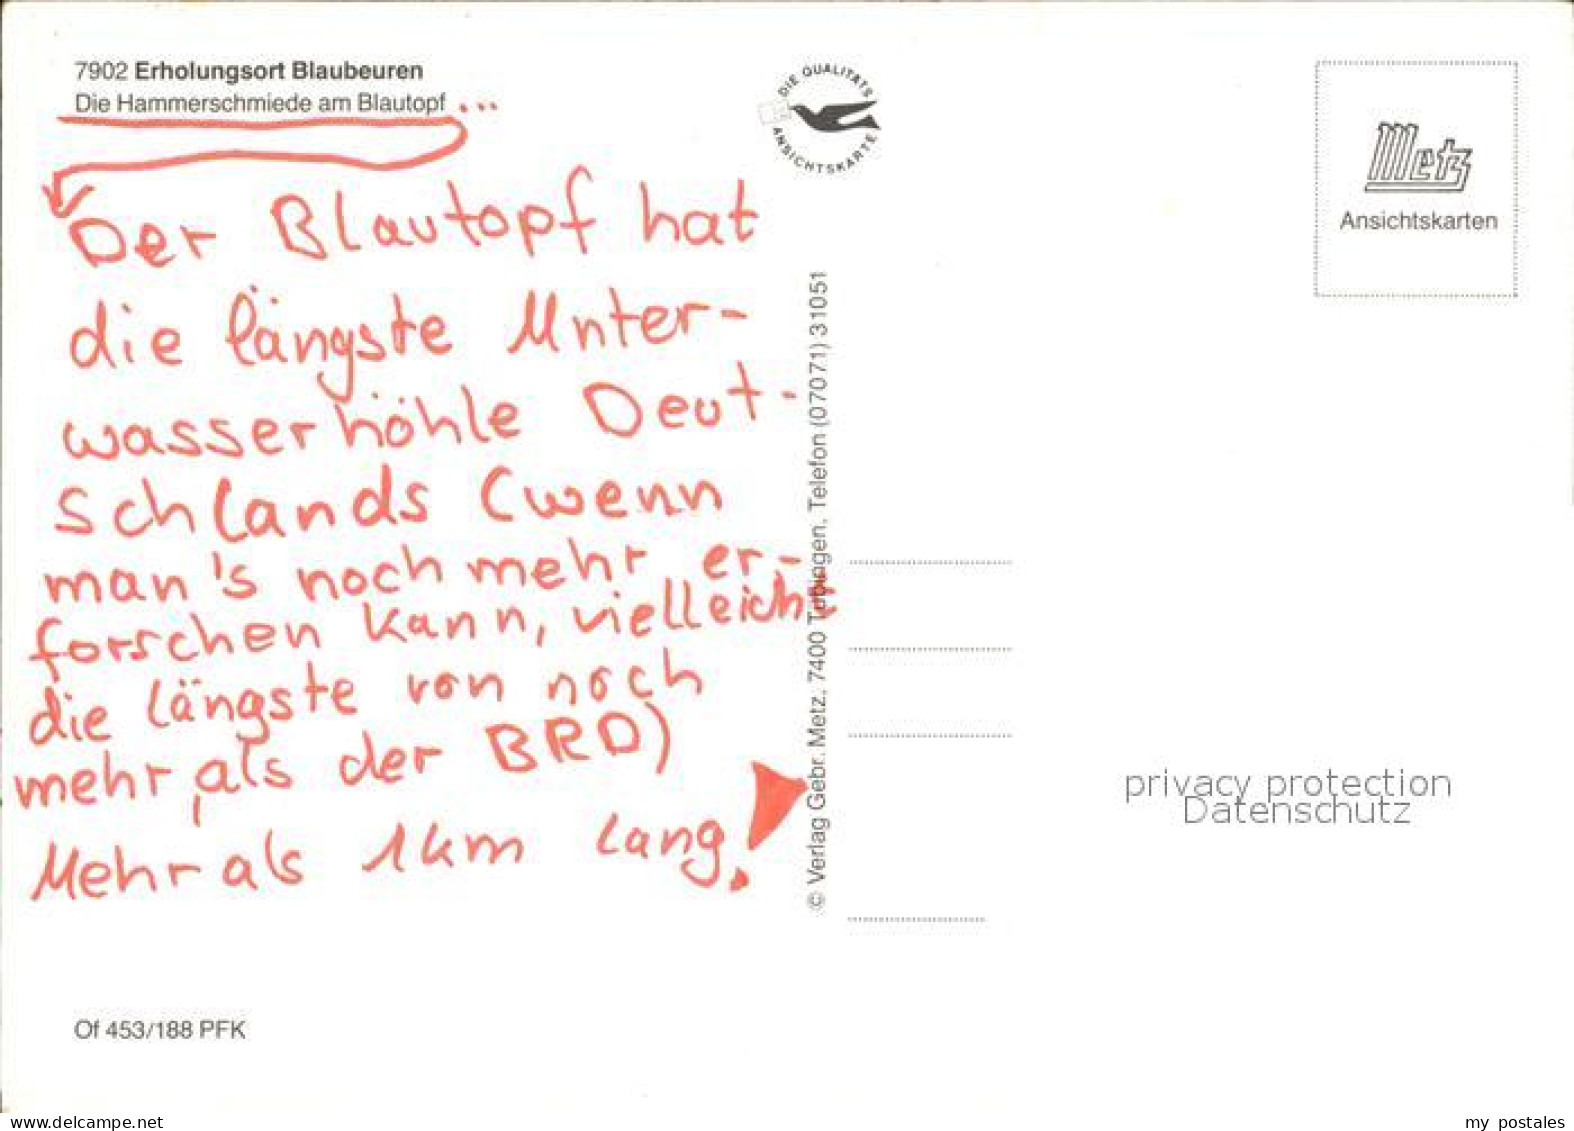 7902 Erholungsort Blaubeuren
Die Hammerschmiede am Blautopf ...
Der Blautopf hat
die längste Unter-
wasserhöhle Deut-
schlands (wenn
man's noch mehr er-
forschen kann, vielleicht
die längste von noch
mehr als der BRD)
Mehr als 1km lang.
Of 453/188 PFK
DIE QUALITÄTS
ANSICHTSKARTE
© Verlag Gebr. Metz, 7400 Tübingen, Telefon (07071) 31051
Metz
Ansichtskarten
privacy protection
Datenschutz
www.delcampe.net
my postales